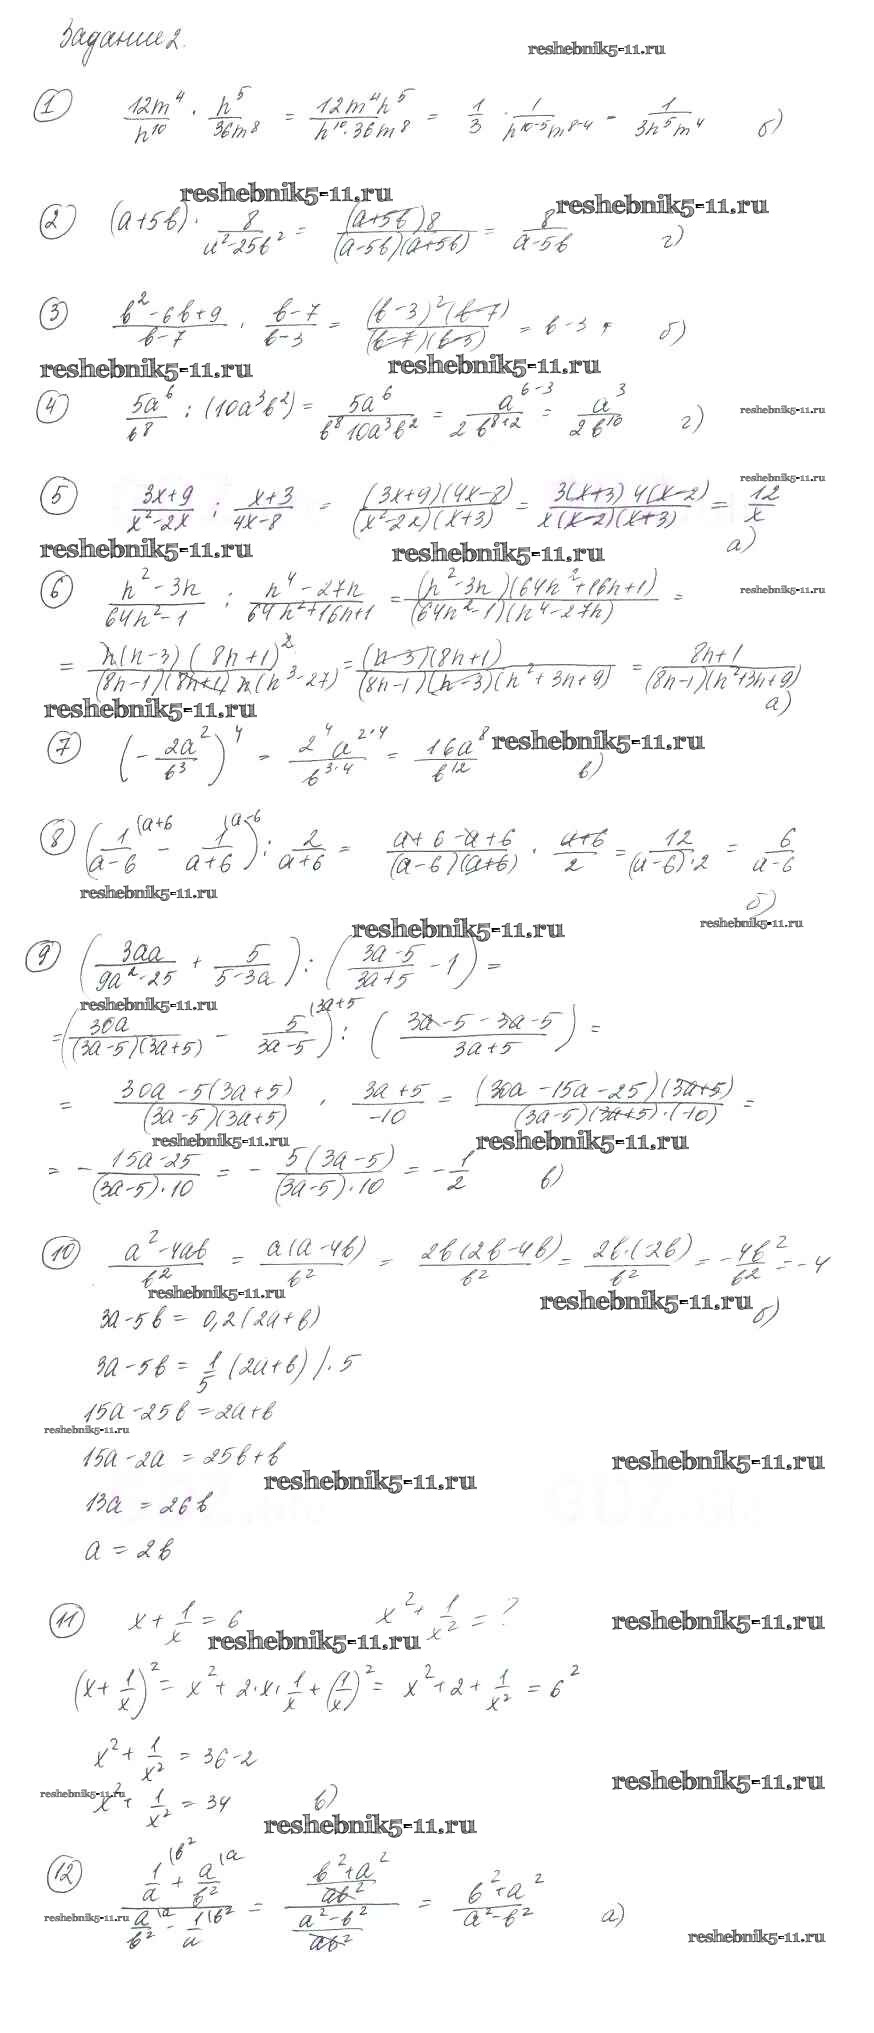 Задание 2.
reshebnik5-11.ru
① 12m⁴/n¹⁰ · n⁵/36m⁸ = 12m⁴n⁵/n¹⁰·36m⁸ = 1/3 · 1/n¹⁰⁻⁵m⁸⁻⁴ = 1/3n⁵m⁴ б)
reshebnik5-11.ru
reshebnik5-11.ru
② (a+5b) · 8/a²-25b² = (a+5b)8/(a-5b)(a+5b) = 8/a-5b г)
③ b²-6b+9/b-7 · b-7/b-3 = (b-3)²(b-7)/(b-7)(b-3) = b-3 б)
reshebnik5-11.ru
reshebnik5-11.ru
④ 5a⁶/b⁸ : (10a³b²) = 5a⁶/b⁸10a³b² = a⁶⁻³/2b⁸⁺² = a³/2b¹⁰ г)
reshebnik5-11.ru
reshebnik5-11.ru
⑤ 3x+9/x²-2x : x+3/4x-8 = (3x+9)(4x-8)/(x²-2x)(x+3) = 3(x+3)4(x-2)/x(x-2)(x+3) = 12/x
а)
reshebnik5-11.ru
reshebnik5-11.ru
⑥ n²-3n/64n²-1 : n⁴-27n/64n²+16n+1 = (n²-3n)(64n²+16n+1)/(64n²-1)(n⁴-27n) =
reshebnik5-11.ru
= n(n-3)(8n+1)²/(8n-1)(8n+1)n(n³-27) = (n-3)(8n+1)/(8n-1)(n-3)(n²+3n+9) = 8n+1/(8n-1)(n²+3n+9)
а)
reshebnik5-11.ru
⑦ (-2a²/b³)⁴ = 2⁴a²·⁴/b³·⁴ = 16a⁸/b¹² в)
reshebnik5-11.ru
⑧ (1/a-6 (a+6 - 1/a+6 (a-6) : 2/a+6 = a+6-a+6/(a-6)(a+6) · a+6/2 = 12/(a-6)·2 = 6/a-6
б)
reshebnik5-11.ru
reshebnik5-11.ru
reshebnik5-11.ru
⑨ (30a/9a²-25 + 5/5-3a) : (3a-5/3a+5 - 1) =
reshebnik5-11.ru
= (30a/(3a-5)(3a+5) - 5/3a-5 (3a+5) : (3a-5-3a-5/3a+5) =
= 30a-5(3a+5)/(3a-5)(3a+5) · 3a+5/-10 = (30a-15a-25)(3a+5)/(3a-5)(3a+5)·(-10) =
reshebnik5-11.ru
reshebnik5-11.ru
= - 15a-25/(3a-5)·10 = - 5(3a-5)/(3a-5)·10 = - 1/2 в)
⑩ a²-4ab/b² = a(a-4b)/b² = 2b(2b-4b)/b² = 2b·(-2b)/b² = - 4b²/b² = -4
б)
reshebnik5-11.ru
reshebnik5-11.ru
3a-5b = 0,2(2a+b)
3a-5b = 1/5 (2a+b) |·5
15a-25b = 2a+b
reshebnik5-11.ru
15a-2a = 25b+b
reshebnik5-11.ru
reshebnik5-11.ru
13a = 26b
a = 2b
⑪ x + 1/x = 6 x² + 1/x² = ?
reshebnik5-11.ru
reshebnik5-11.ru
(x + 1/x)² = x² + 2·x·1/x + (1/x)² = x² + 2 + 1/x² = 6²
x² + 1/x² = 36-2
reshebnik5-11.ru
reshebnik5-11.ru
x² + 1/x² = 34 в)
reshebnik5-11.ru
⑫ 1/a (b² + a/b² (a / a/b² (a - 1/a (b² = b²+a²/ab² / a²-b²/ab² = b²+a²/a²-b² а)
reshebnik5-11.ru
reshebnik5-11.ru